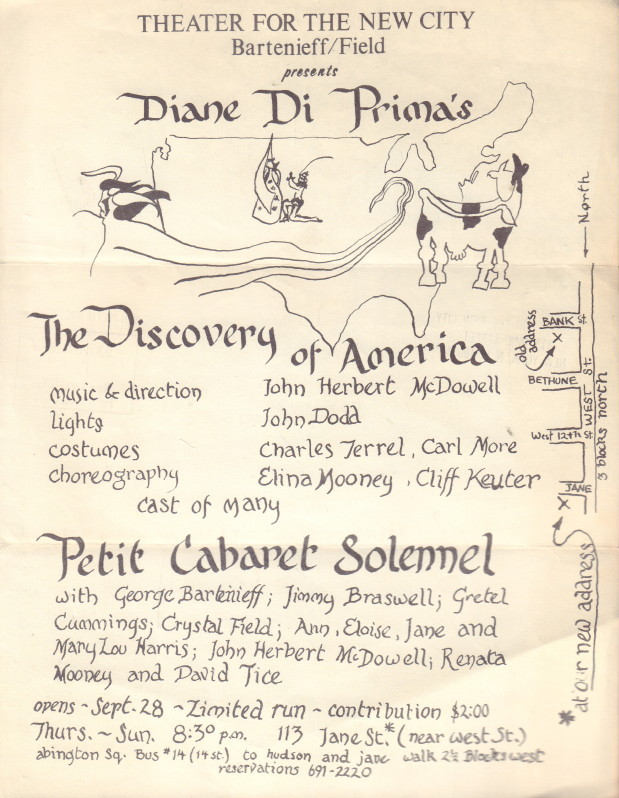 THEATER FOR THE NEW CITY
Bartenieff/Field
presents
Diane Di Prima's
The Discovery of America
music & direction John Herbert McDowell
lights John Dodd
costumes Charles Terrel, Carl More
choreography Elina Mooney, Cliff Keuter
cast of many
Petit Cabaret Solennel
with George Bartenieff; Jimmy Braswell; Gretel
Cummings; Crystal Field; Ann, Eloise, Jane and
Mary Lou Harris; John Herbert McDowell; Renata
Mooney and David Tice
opens ~ Sept. 28 ~ Limited run ~ contribution $2.00
Thurs. ~ Sun. 8:30 p.m. 113 Jane St.* (near West St.)
abington Sq. Bus #14 (14 st.) to hudson and jane walk 2½ Blocks west
reservations 691-2220
North
BANK St.
old address
X
BETHUNE
WEST St.
West 12th St.
3 blocks north
JANE
X
*at our new address